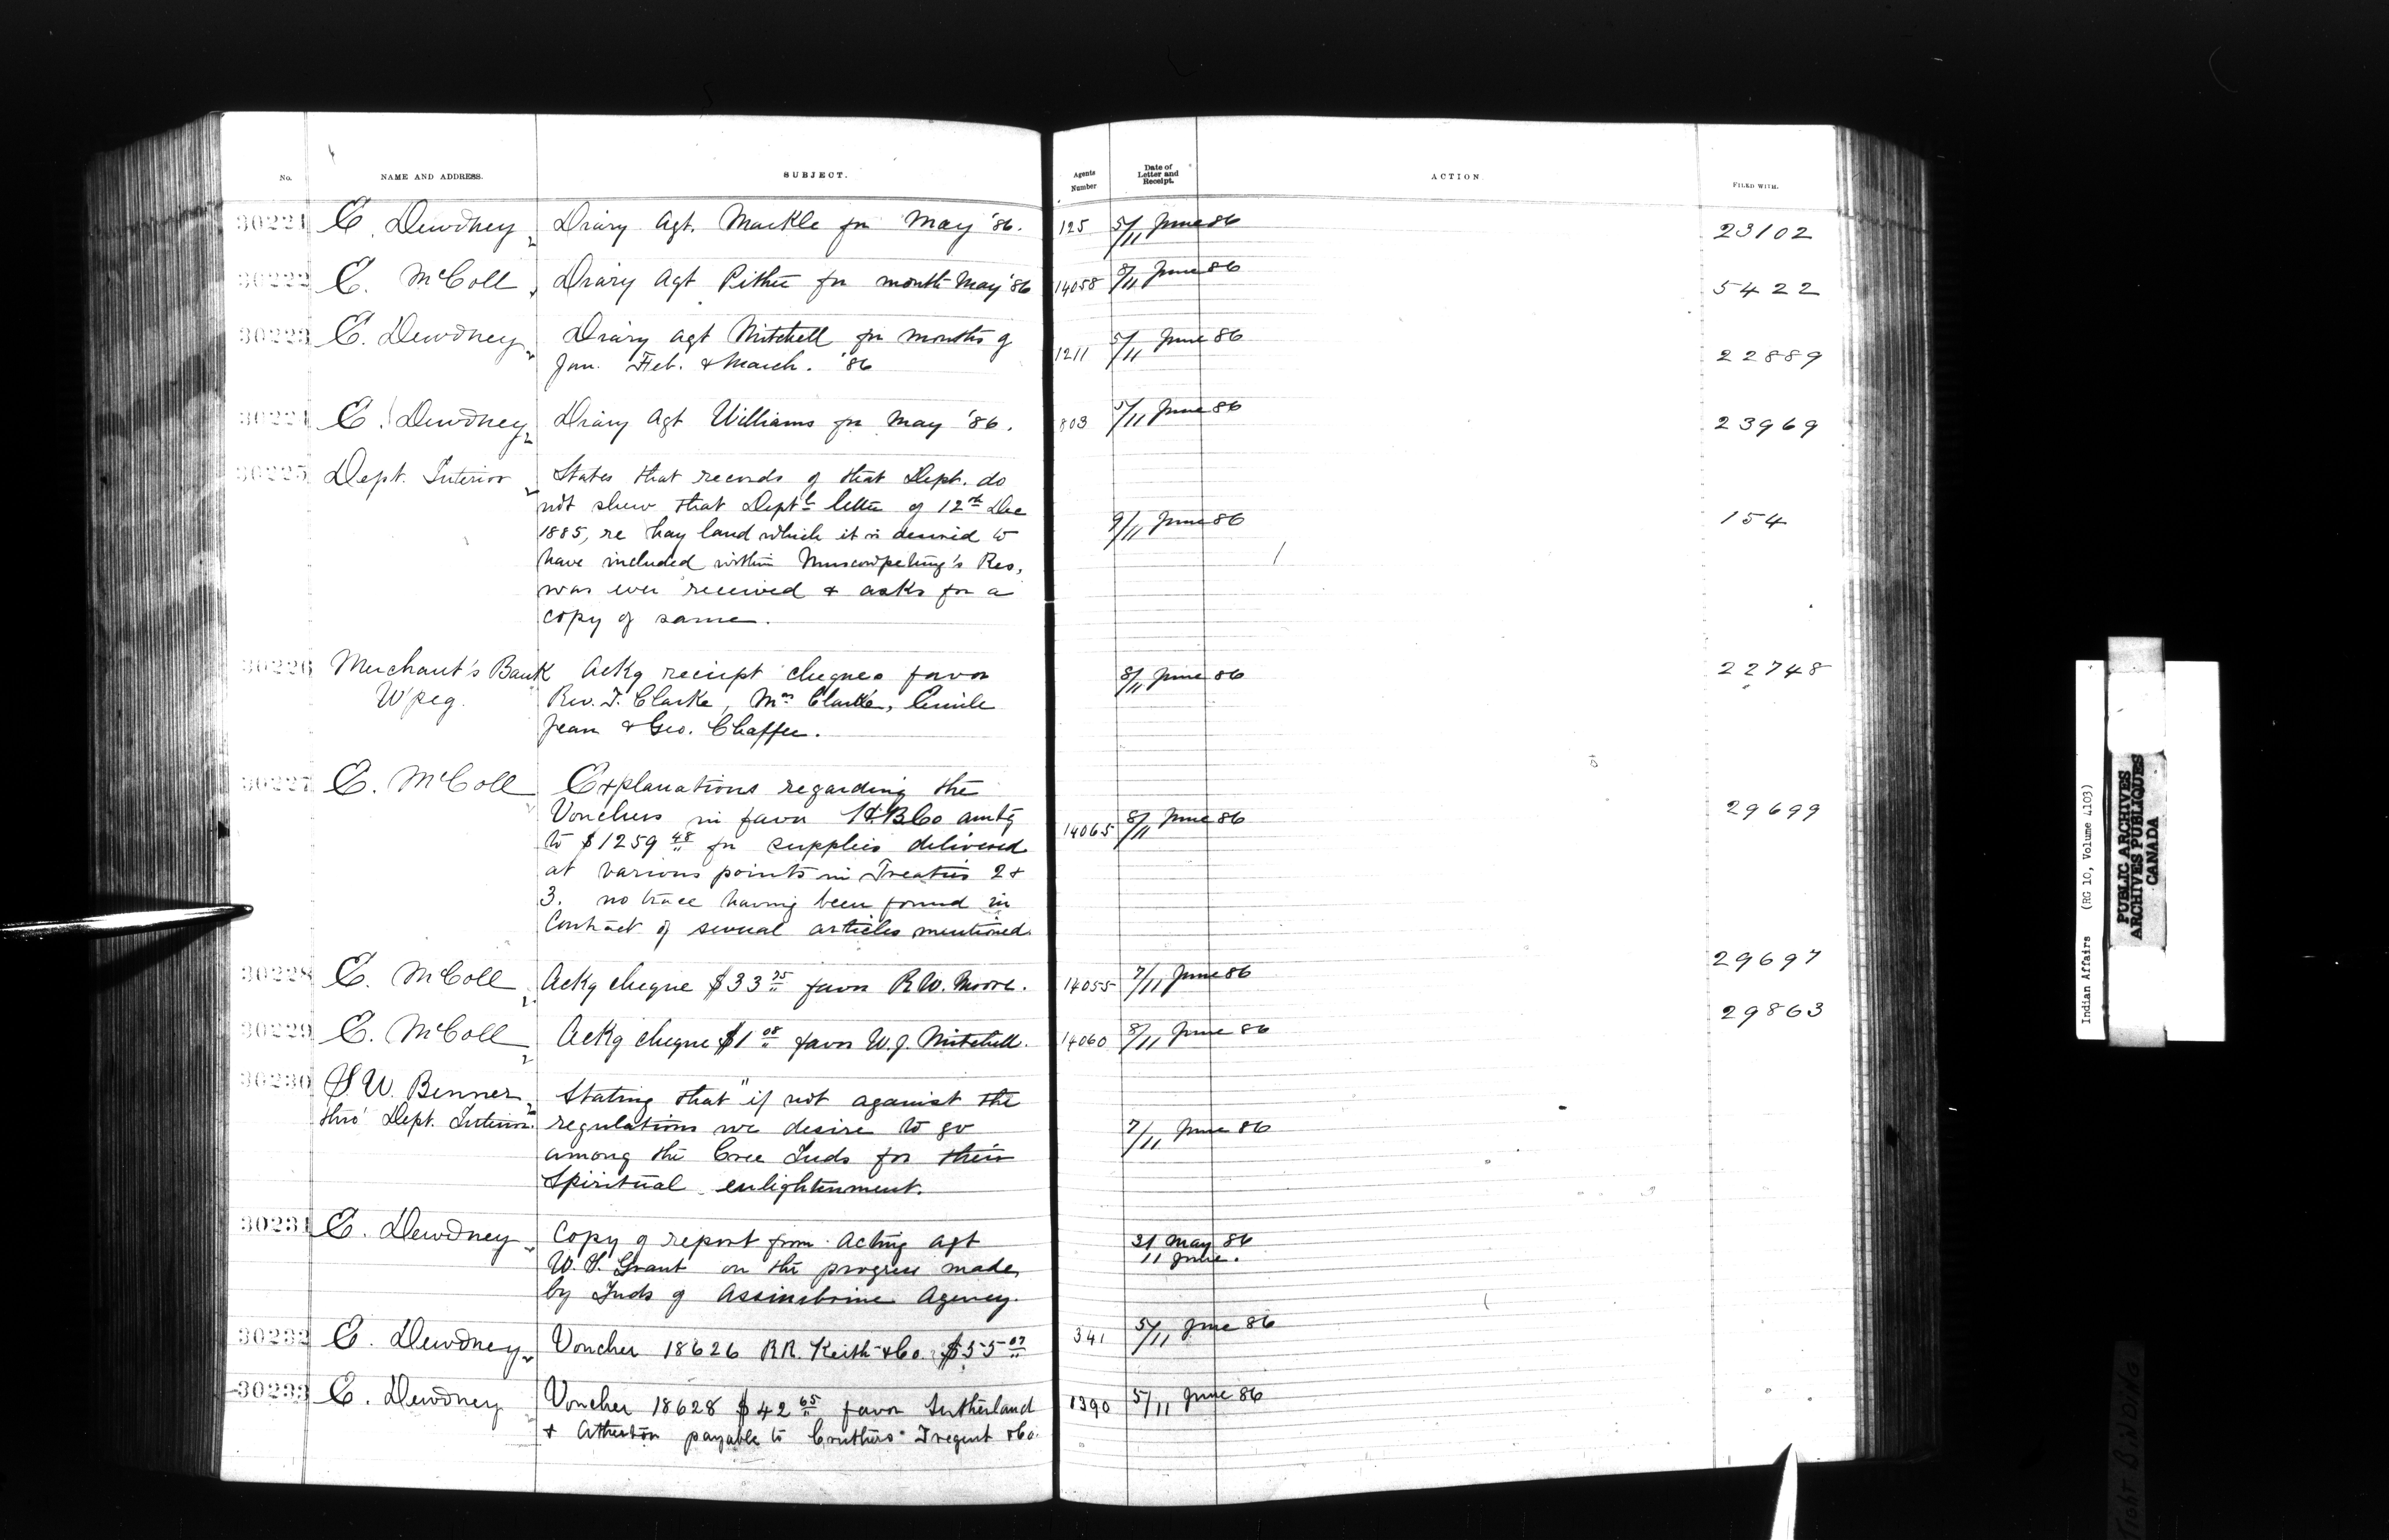 No. NAME AND ADDRESS. SUBJECT. Agents Number Date of Letter and Receipt. ACTION FILED WITH.
30221 E. Dewdney Diary Agt. Markle for May '86. 125 5/11 June 86 23102
30222 E. McColl Diary Agt Pither for month May '86 14058 8/11 June 86 5422
30223 E. Dewdney Diary Agt Mitchell for months of 1211 5/11 June 86 22889
Jan. Feb. & March. '86
30224 E. Dewdney Diary Agt Williams for May '86. 803 5/11 June 86 23969
30225 Dept. Interior States that records of that Dept. do
not shew that Deptl letter of 12th Dec
1885, re hay land which it is desired to 9/11 June 86 154
have included within Muscowpetung's Res,
was ever received & asks for a
copy of same.
30226 Merchant's Bank Ackg receipt cheques favor 8/11 June 86 22748
Wpeg. Rev. T. Clarke, Mrs Clarke, Emile
Jean & Geo. Chaffee.
30227 E. McColl Explanations regarding the
Vouchers in favor H.B.Co amtg 14065 8/11 June 86 29699
to $1259 48 for supplies delivered
at various points in Treaties 2 &
3. no trace having been found in
Contract of several articles mentioned.
30228 E. McColl Ackg cheque $33 75 favor R.W. Moore. 14055 7/11 June 86 29697
30229 E. McColl Ackg cheque $1 08 favor W.J. Mitchell. 14060 8/11 June 86 29863
30230 S.W. Benner Stating that "if not against the
thro' Dept. Interior. regulations we desire to go 7/11 June 86
among the Cree Inds for their
Spiritual enlightenment.
30231 E. Dewdney Copy of report from Acting Agt 31 May 86
W.S. Grant on the progress made 11 June.
by Inds of Assiniboine Agency.
30232 E. Dewdney Voucher 18626 R.R. Keith & Co. $55 07 341 5/11 June 86
30233 E. Dewdney Voucher 18628 $42 65 favor Sutherland 1390 5/11 June 86
& Atherton payable to Cruthers Tregent & Co.
Indian Affairs (RG 10, Volume 4103)
PUBLIC ARCHIVES
ARCHIVES PUBLIQUES
CANADA
TIGHT BINDING